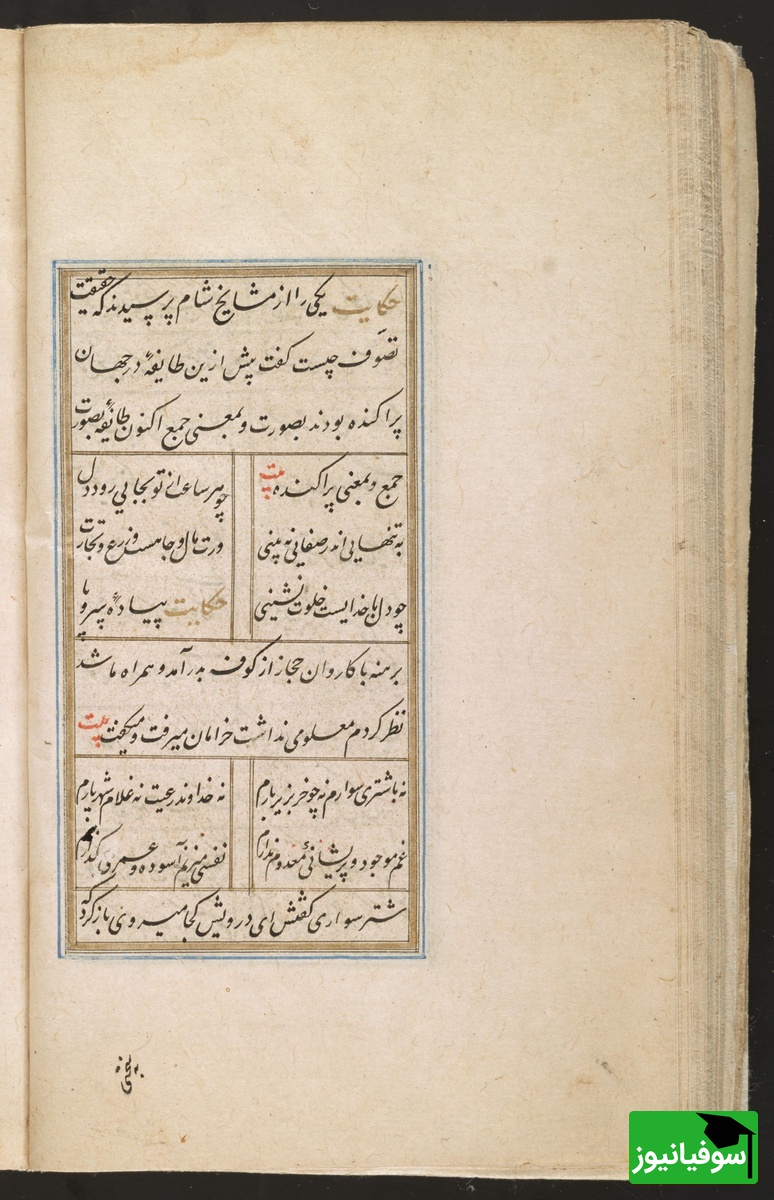 حکایت یکی را از مشایخ شام پرسیدند که حقیقت
تصوف چیست گفت پیش ازین طایفهٔ در جهان
پراکنده بودند بصورت و بمعنی جمع اکنون طایفهٔ بصورت
جمع و بمعنی پراکنده بیت چو هر ساعت از تو بجایی رود دل
به تنهایی اندر صفایی نه بینی ورت مال و جاهست و زرع و تجارت
چو دل با خدایست خلوت نشینی حکایت پیادهٔ سر و پا
برهنه با کاروان حجاز از کوفه بدر آمد و همراه ما شد
نظر کردم معلومی نداشت خرامان میرفت و میگفت بیت
نه باشتری سوارم نه چو خر بزیر بارم نه خداوند رعیت نه غلام شهریارم
غم موجود و پریشانی معدوم ندارم نفسی میزنم آسوده و عمری گذارم
شتر سواری گفتش ای درویش کجا میروی باز گرد که
بسختی
سوفیانیوز